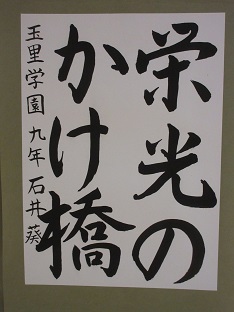 栄光の
かけ橋
玉里学園 九年 石井 葵